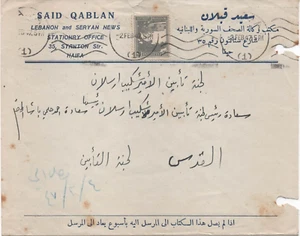 SAID QABLAN
LEBANON and SERYAN NEWS
STATIONRY OFFICE
33, STANTON ST.
HAIFA
سعيد قبلان
مكتب وكالة الصحف السورية واللبنانية
شارع ستانتون رقم ٣٥
حيفا
لجنة تأبين الأمير شكيب ارسلان
سعادة رئيس لجنة تأبين الأمير شكيب ارسلان سعادة
القدس
لجنة التأبين
اذا لم يصل هذا الكتاب الى المرسل اليه بأسبوع يعاد الى المرسل